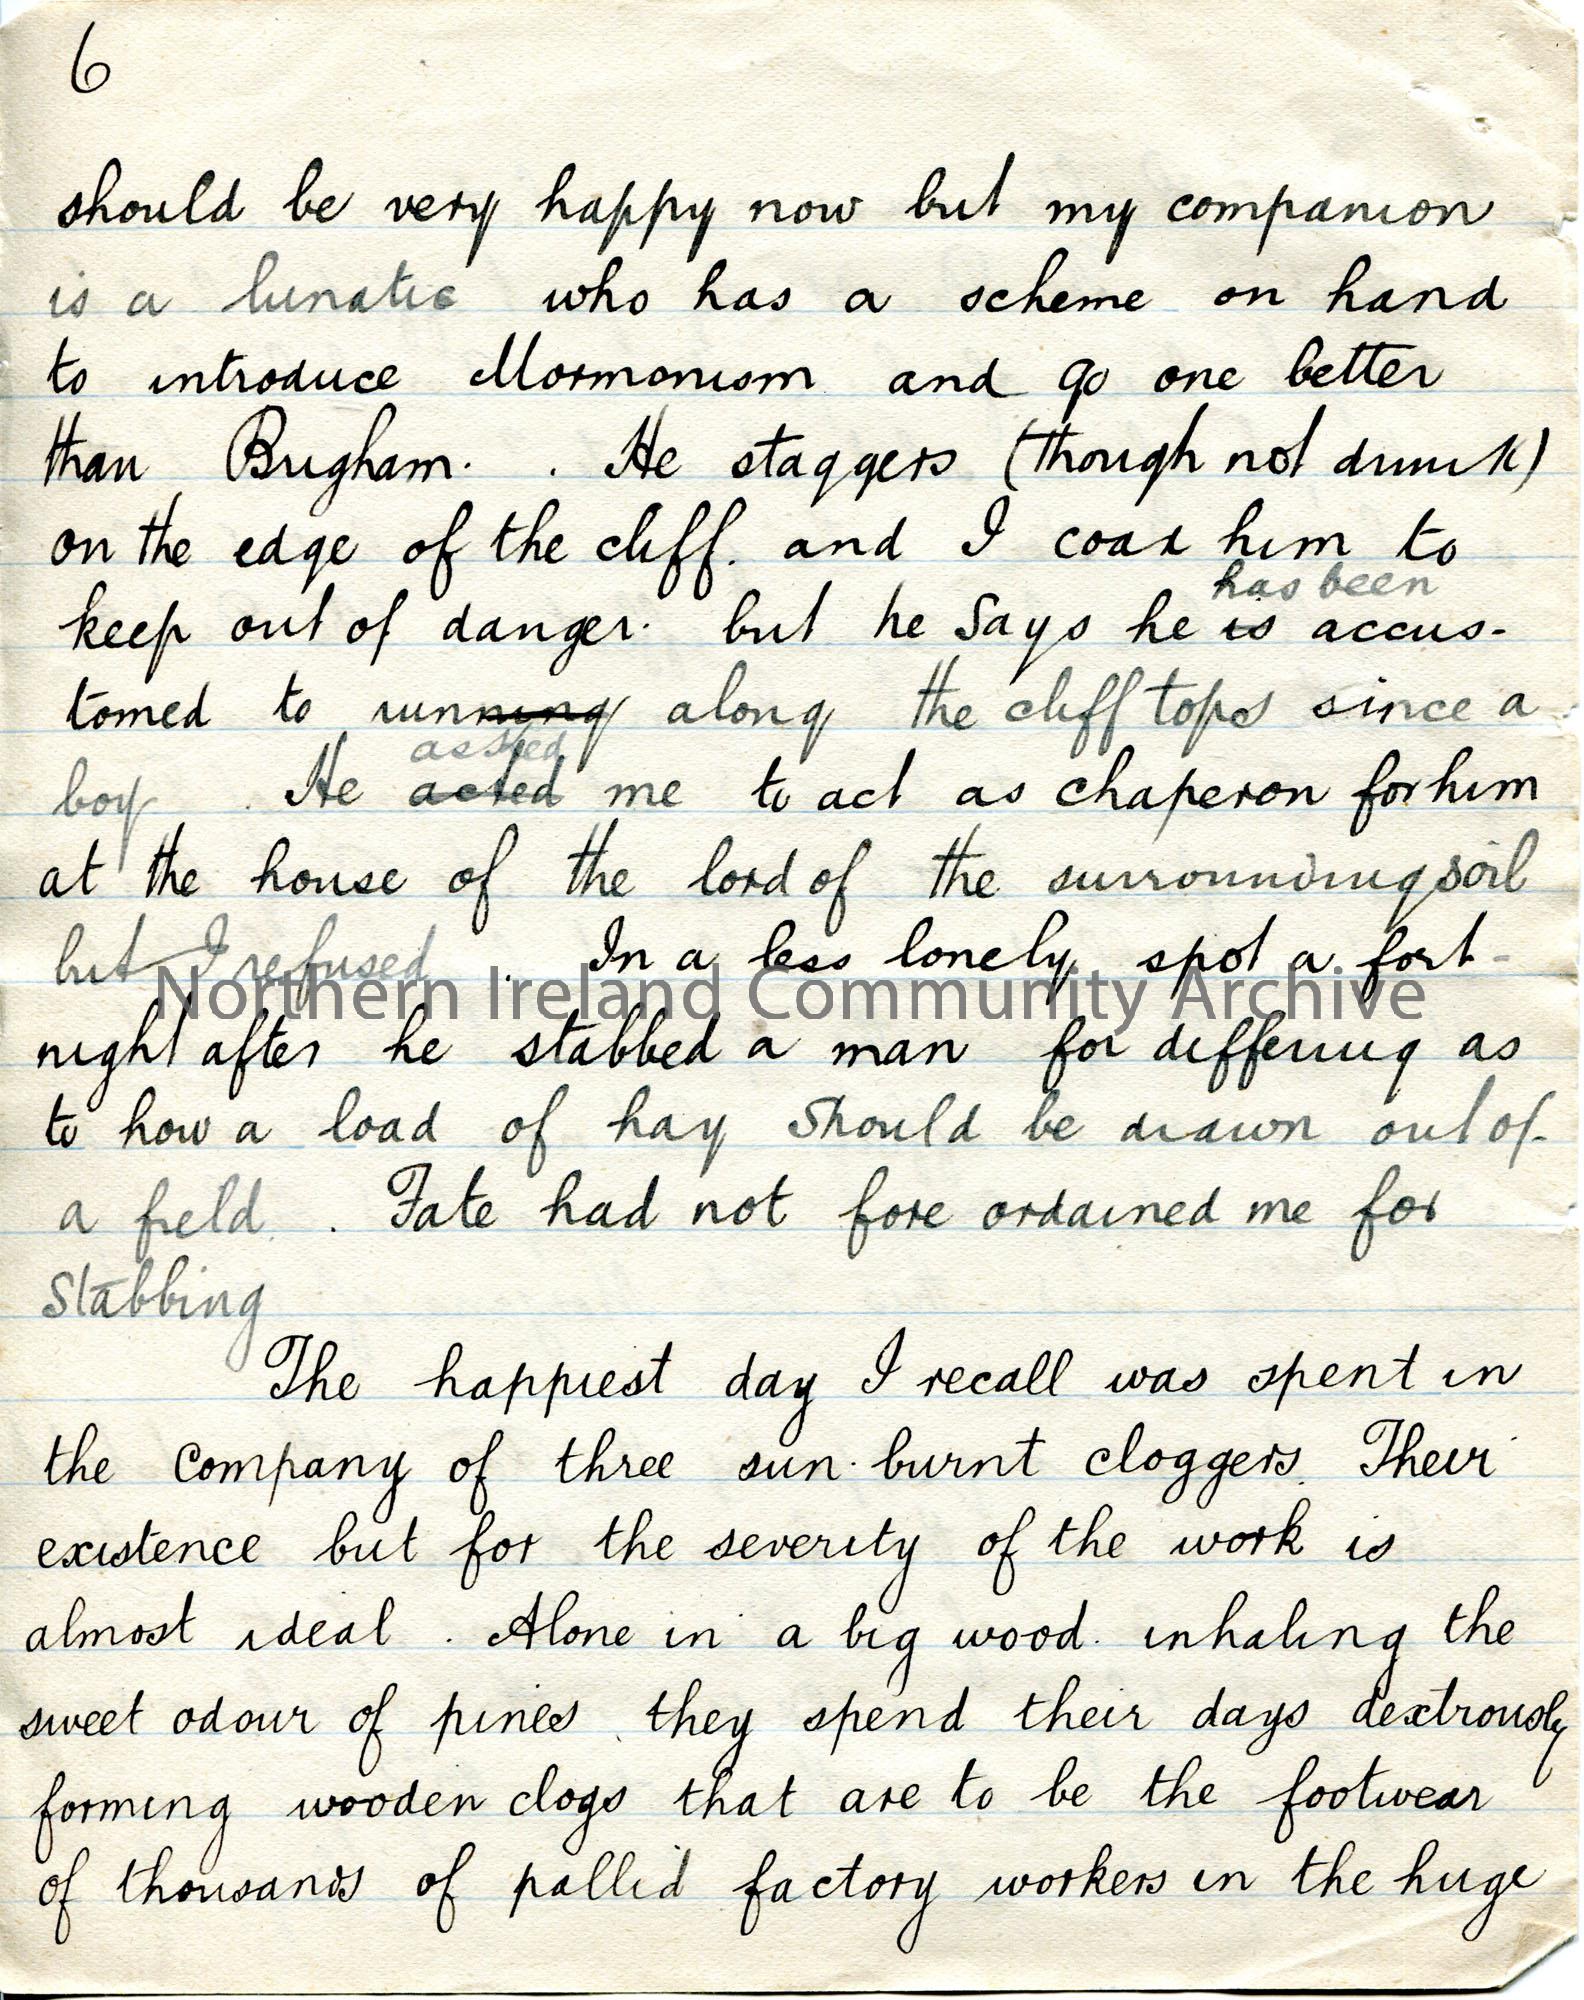 6
should be very happy now but my companion
is a lunatic who has a scheme on hand
to introduce Mormonism and go one better
than Brigham. . He staggers (though not drunk)
on the edge of the cliff. and I coax him to
has been
keep out of danger. but he says he is accus-
tomed to running along the cliff tops since a
asked
boy . He acted me to act as chaperon for him
at the house of the lord of the surrounding soil
but I refused . In a less lonely spot a fort-
Northern Ireland Community Archive
night after he stabbed a man for differing as
to how a load of hay should be drawn out of
a field. . Fate had not fore ordained me for
stabbing
The happiest day I recall was spent in
the company of three sun-burnt cloggers. Their
existence but for the severity of the work is
almost ideal . Alone in a big wood. inhaling the
sweet odour of pines, they spend their days dextrously
forming wooden clogs that are to be the footwear
of thousands of pallid factory workers in the huge